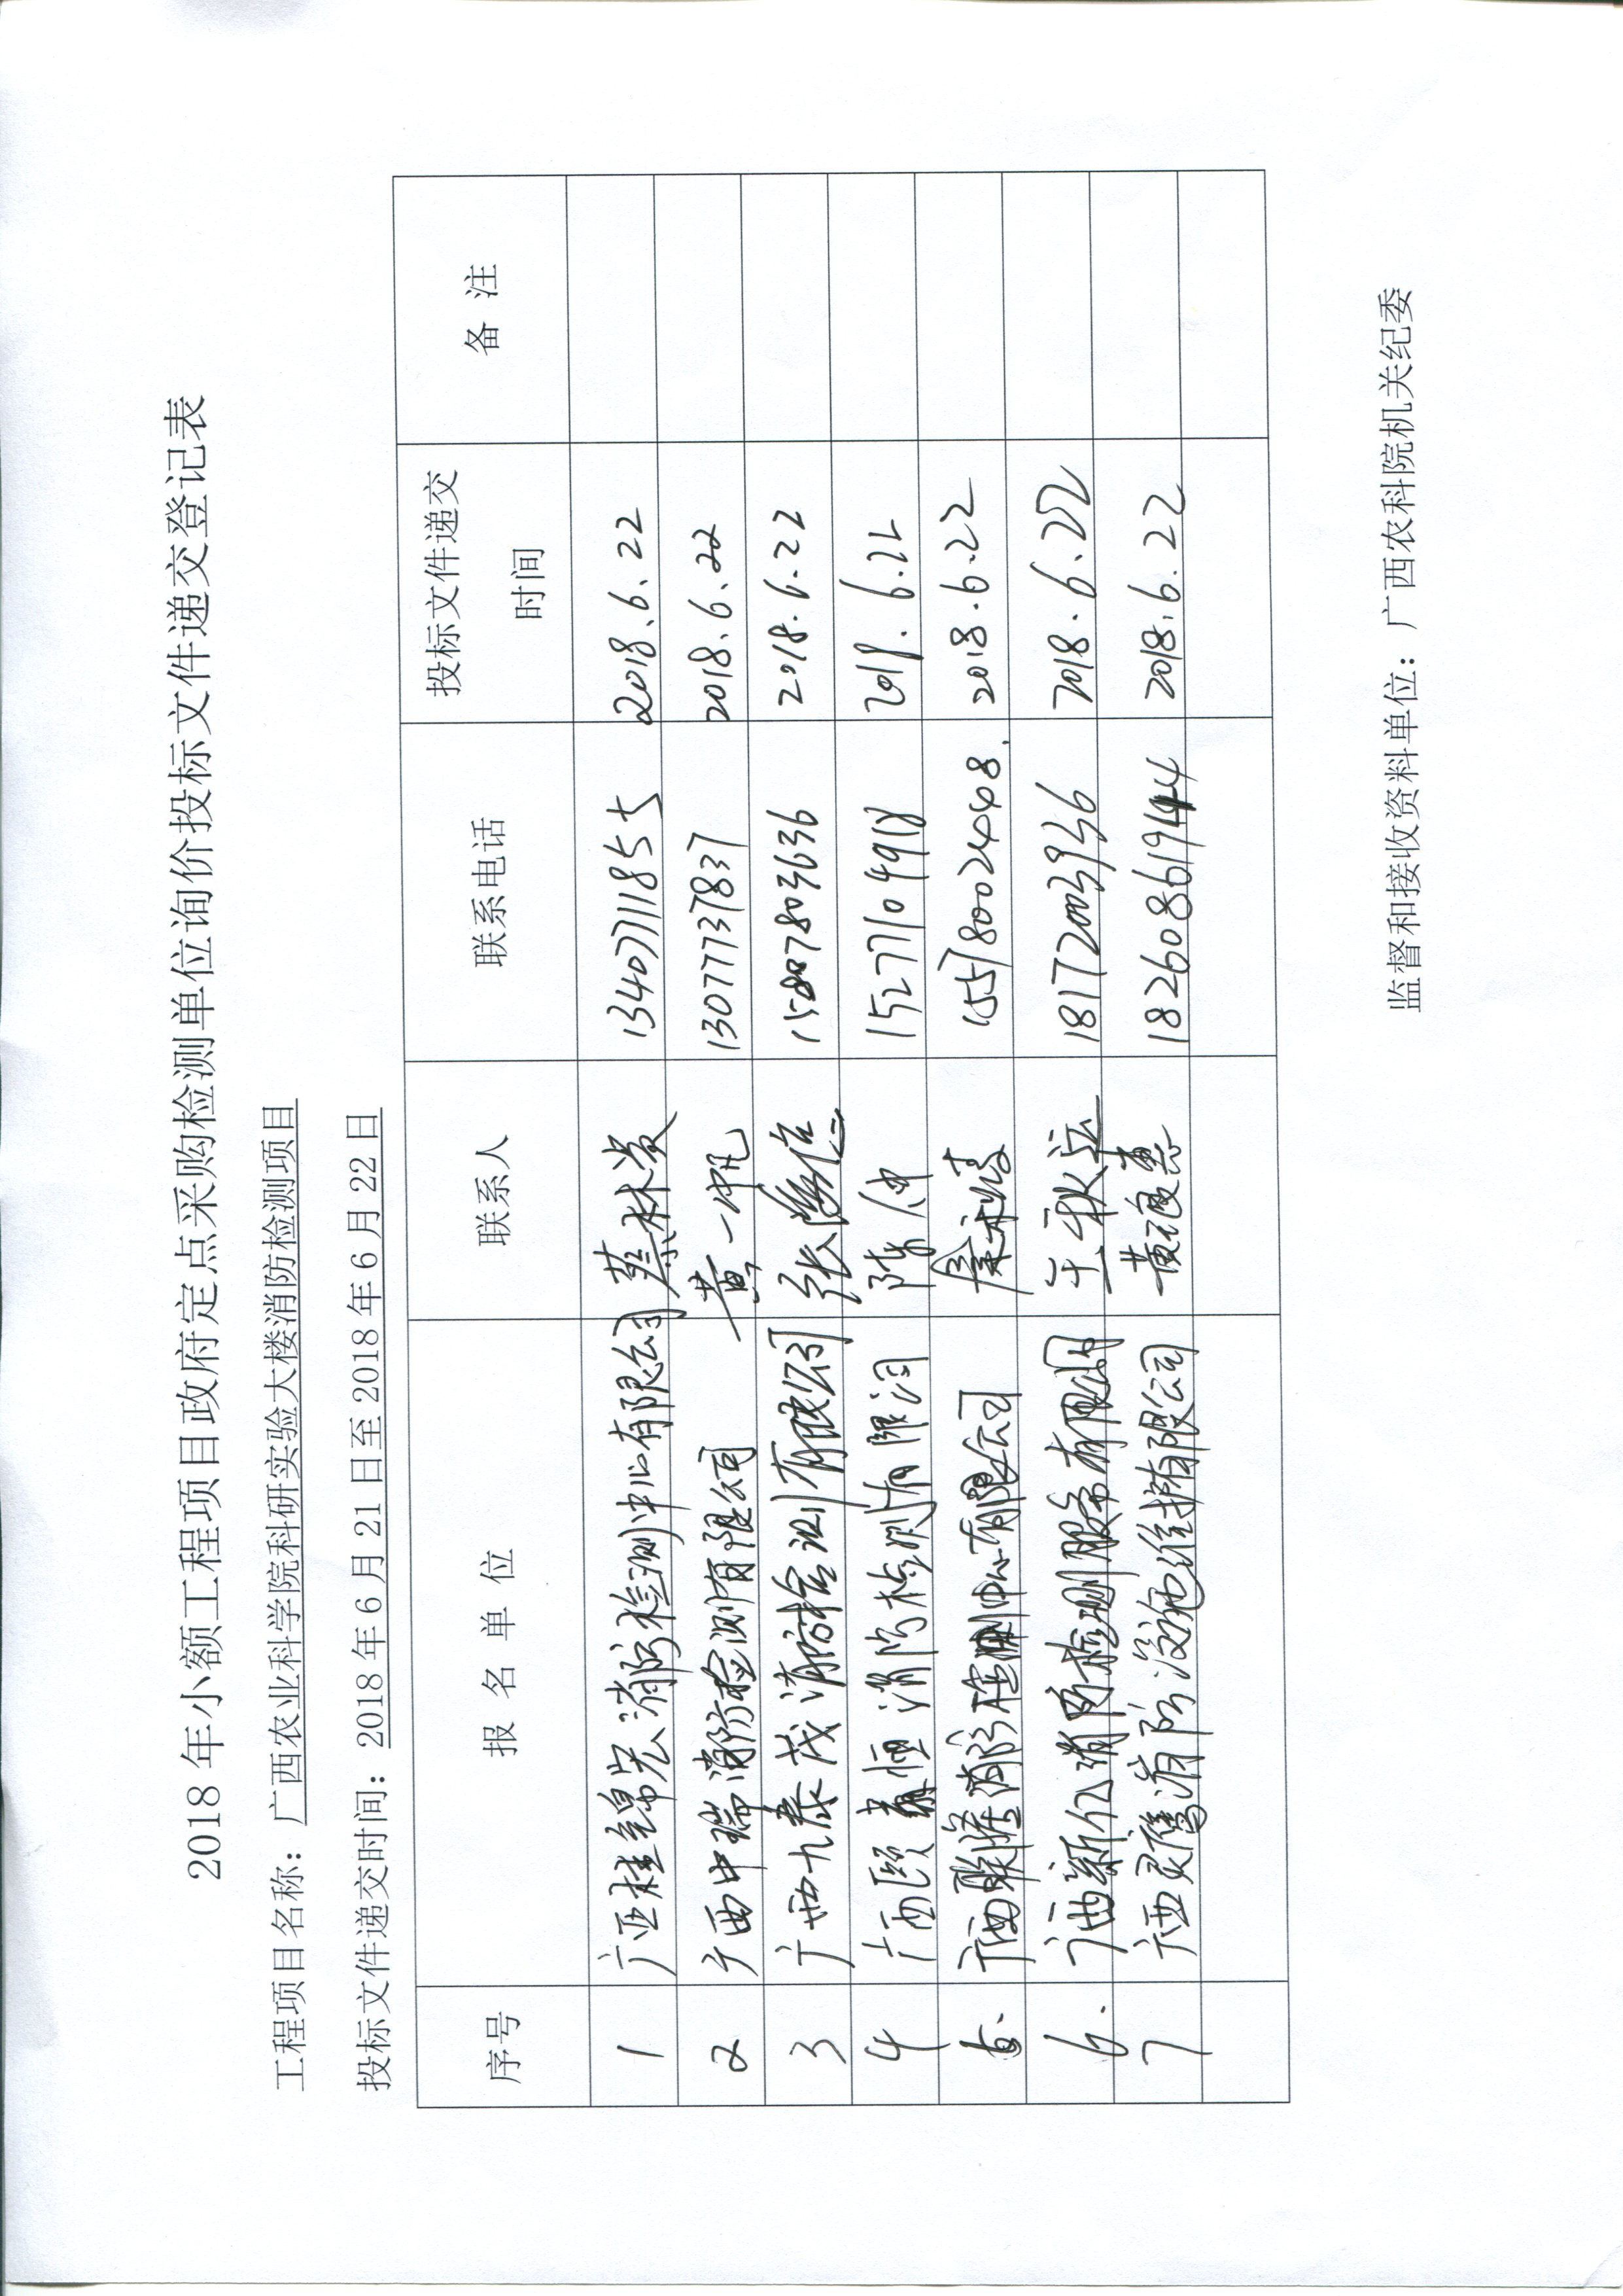 2018 年小额工程项目政府定点采购检测单位询价投标文件递交登记表
工程项目名称：广西农业科学院科研实验大楼消防检测项目
投标文件递交时间：2018 年 6 月 21 日至 2018 年 6 月 22 日
序号 报 名 单 位 联系人 联系电话 投标文件递交时间 备 注
1 广西桂锦宏消防检测中心有限公司 蔡林贵 13407711855 2018.6.22
2 广西中瑞消防检测有限公司 黄一帆 13077737837 2018.6.22
3 广西九泰茂消防检测有限公司 张 15878803636 2018.6.22
4 广西颐恒消防检测有限公司 陈 15277104918 2018.6.22
5. 广西联消防检测中心有限公司 15578002448. 2018.6.22
6. 广西新亿消防检测服务有限公司 18172003936 2018.6.22
7 广西灵鹰消防设施维护有限公司 黄 18260861944 2018.6.22
监督和接收资料单位：广西农科院机关纪委